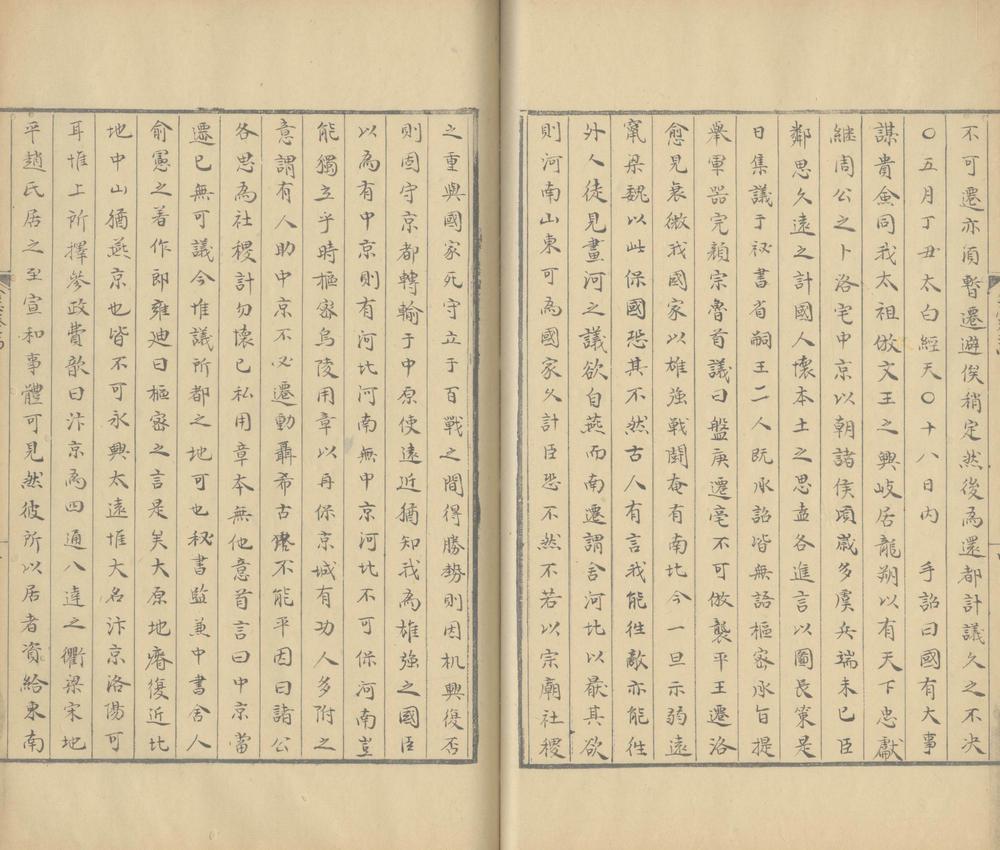 不可遷亦須暫遷避俟稍定然後為還都計議久之不决
〇五月丁丑太白經天〇十八日内　手詔曰國有大事
謀貴僉同我太祖倣文王之興岐居龍朔以有天下忠獻
継周公之卜洛宅中京以朝諸侯頃歲多虞兵端未已臣
鄰思久遠之計國人懷本土之思盍各進言以圖長策是
日集議于祕書省嗣王二人既承詔皆無語樞宻承旨提
舉軍器完顔宗魯首議曰盤庚遷亳不可倣襲平王遷洛
愈見衰微我國家以雄強戰鬪奄有南北今一旦示弱遠
竄梁魏以此保國恐其不然古人有言我能徃敵亦能徃
外人徒見畫河之議欲自燕而南遷謂舎河北以厭其欲
則河南山東可為國家久計臣恐不然不若以宗廟社稷
之重與國家死守立于百戰之間得勝勢則因机興復否
則固守京都轉輸于中原使遠近猶知我為雄強之國臣
以為有中京則有河北河南無中京河北不可保河南豈
能獨立乎時樞宻烏陵用章以再保京城有功人多附之
意謂有人助中京不必遷動聶希古業不能平因曰諸公
各思為社稷計勿懷已私用章本無他意首言曰中京當
遷已無可議今惟議所都之地可也秘書監兼中書舎人
俞憲之著作郎雍迪曰樞宻之言是矣大原地瘠復近北
地中山猶燕京也皆不可永興太遠惟大名汴京洛陽可
耳惟上所擇參政費歆曰汴京為四通八達之衢梁宋地
平趙氏居之至宣和事體可見然彼所以居者資給東南